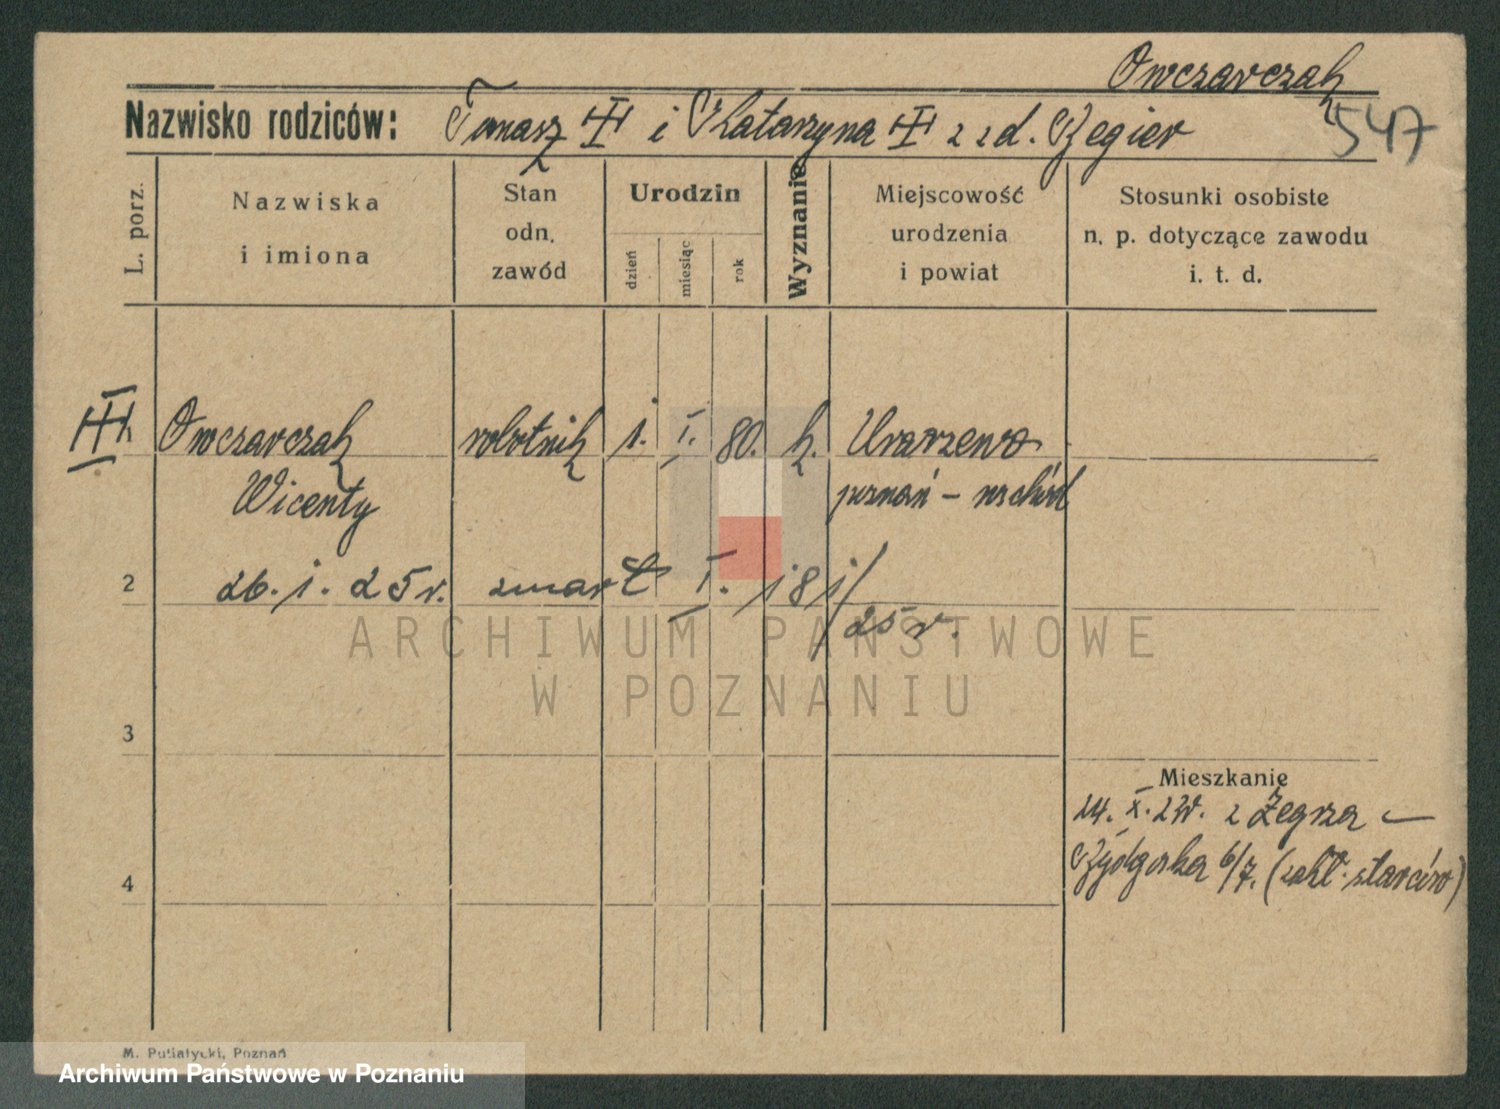 Owczarczak
547
Nazwisko rodziców: Tomasz i Katarzyna z d.
L. porz.
Nazwiska
i imiona
Stan
odn.
zawód
Urodzin
dzień
miesiąc
rok
Wyznanie
Miejscowość
urodzenia
i powiat
Stosunki osobiste
n. p. dotyczące zawodu
i. t. d.
Owczarczak robotnik 1. I. 80. k.
Wicenty poznań – wschód
2 26. 1. 25 r. zmarł I. 181/
25 r.
ARCHIWUM PAŃSTWOWE
W POZNANIU
3
Mieszkanie
24. X. z Żegrza —
4 6/7. (zakł. starców)
M. Putiatycki, Poznań
Archiwum Państwowe w Poznaniu